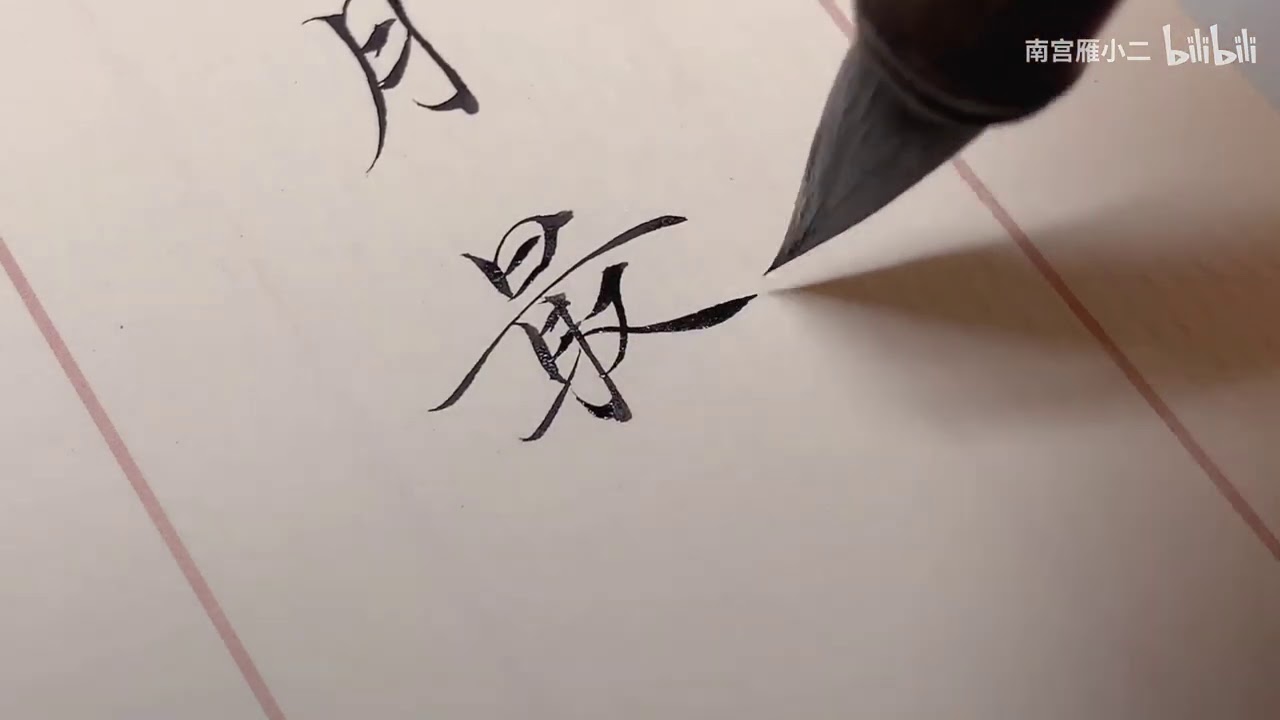 月
最
南宫雁小二 bilibili